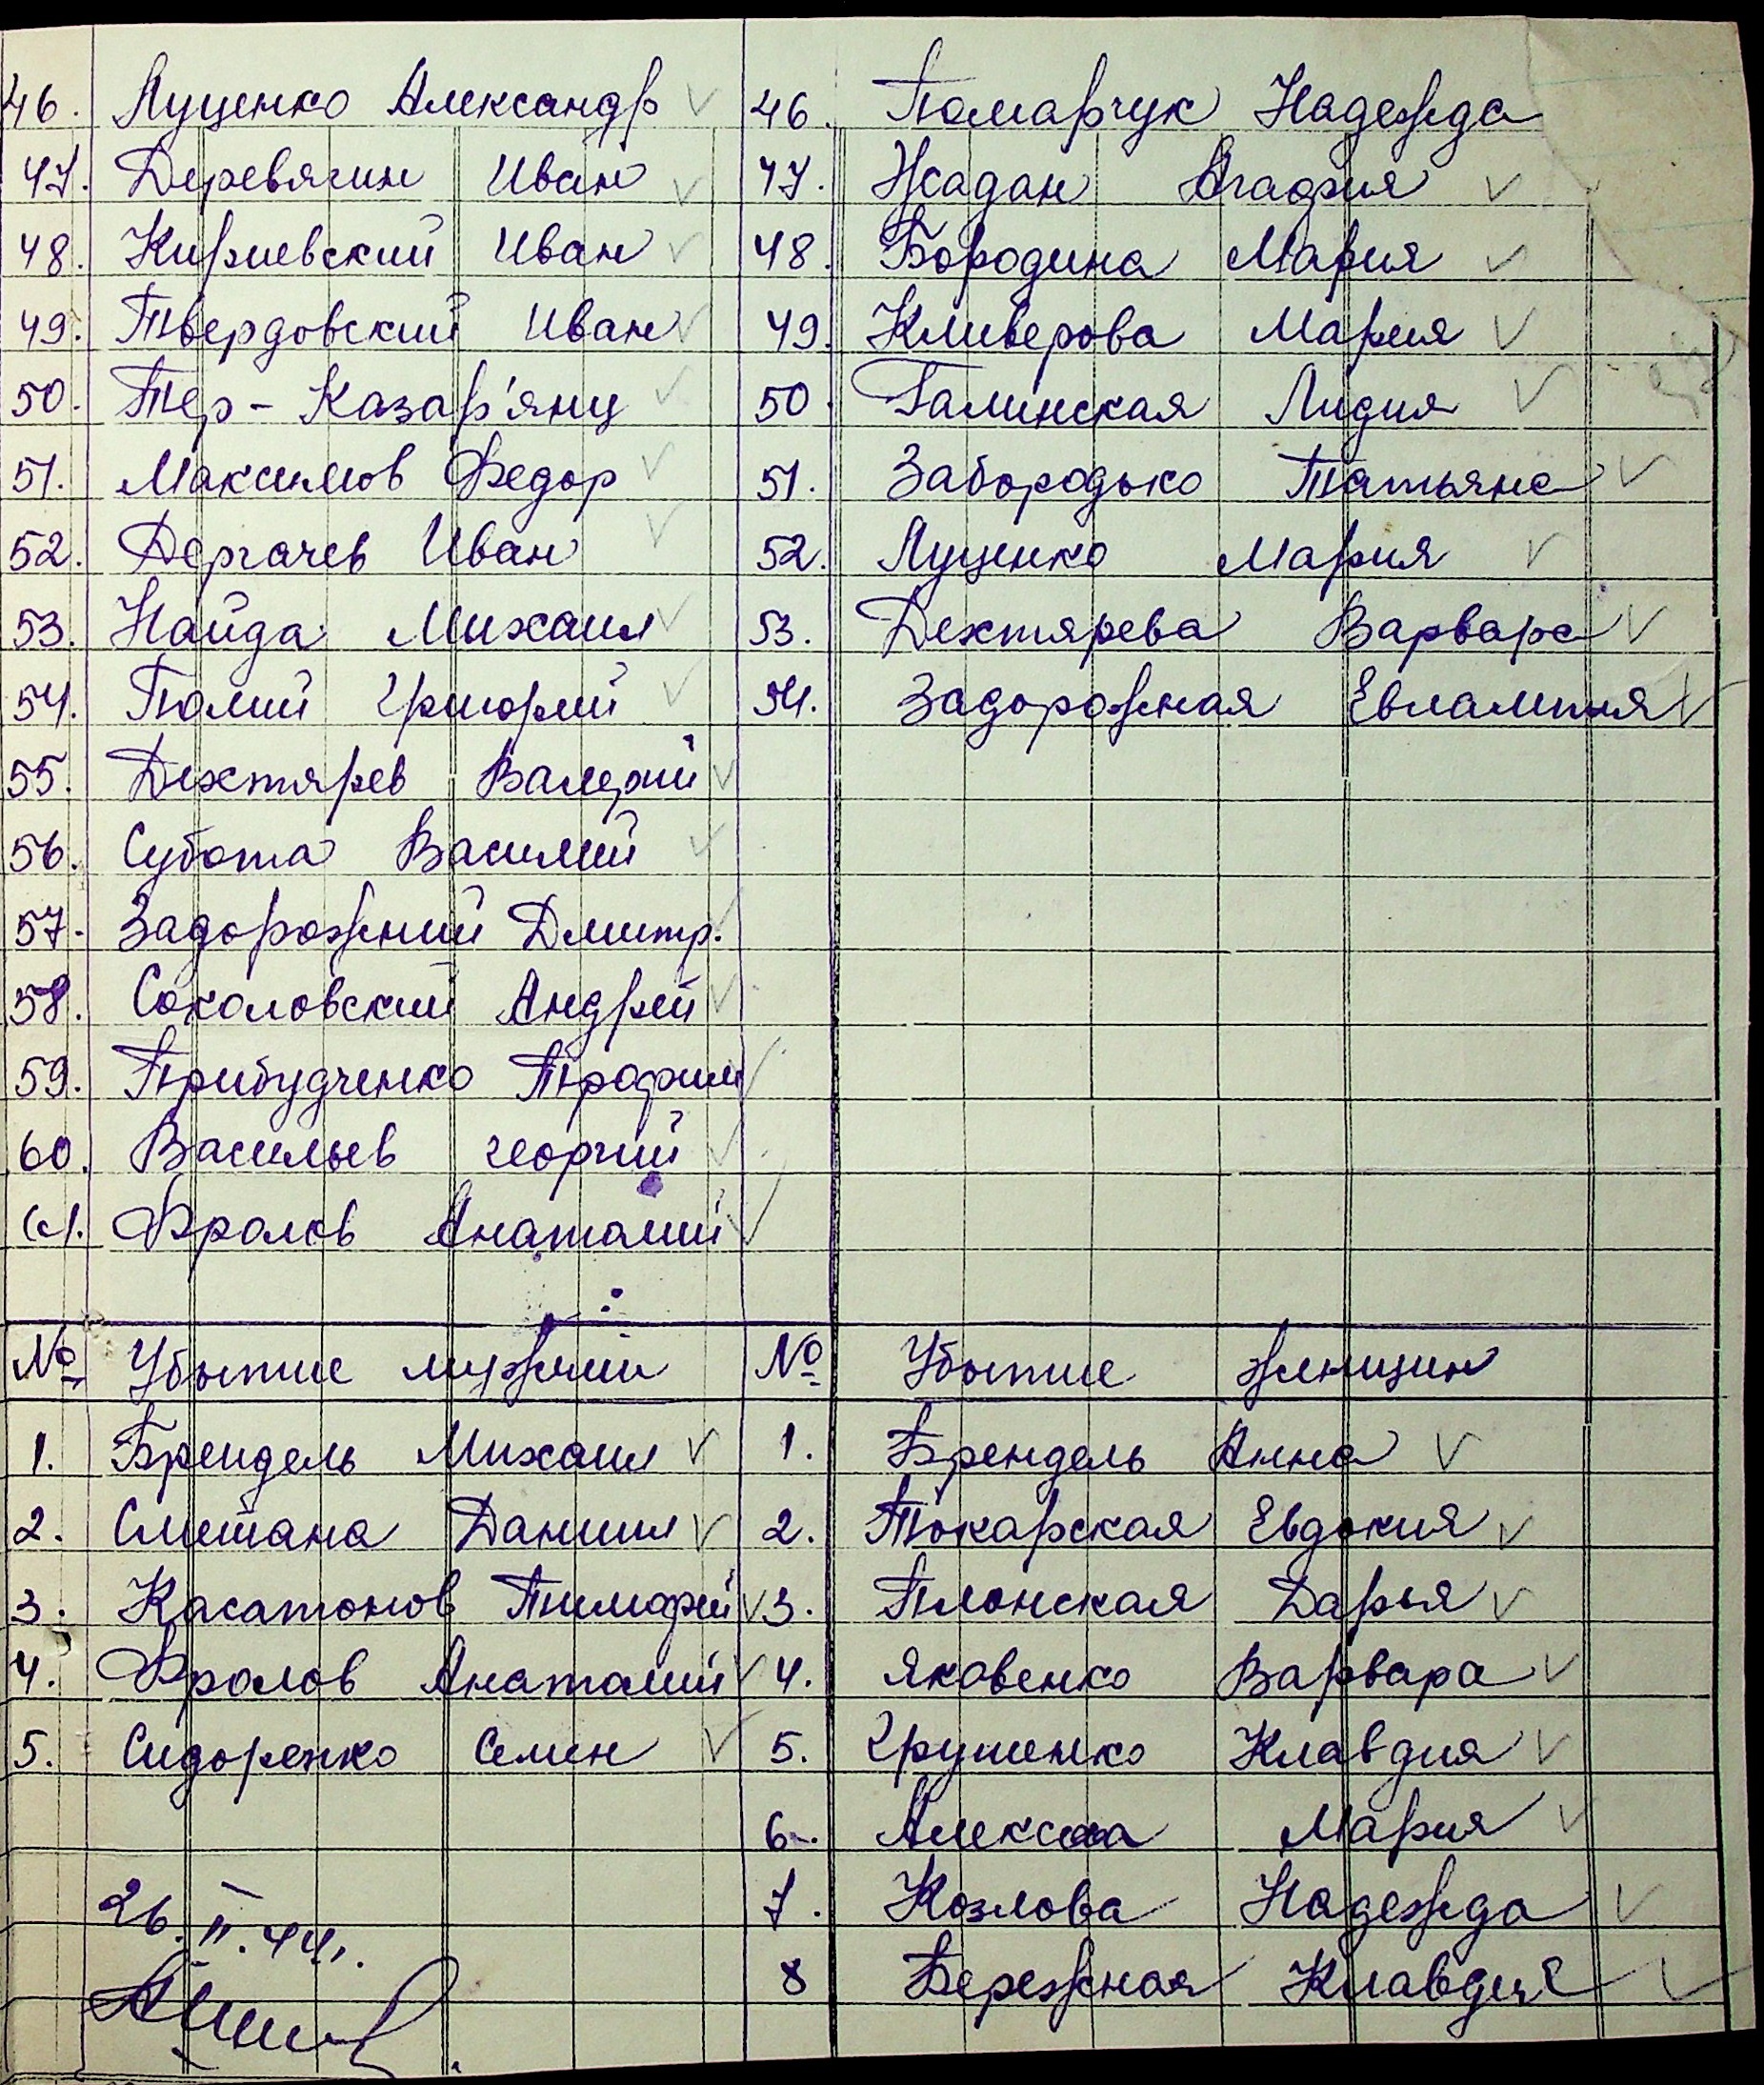 46. Луценко Александр 46. Помарчук Надежда
47. Деревягин Иван 47. Жадан Агафия
48. Кириевский Иван 48. Бородина Мария
49. Твердовский Иван 49. Кливерова Мария
50. Тер-Казар'янц 50. Галинская Лидия
51. Максимов Федор 51. Забородько Татьяна
52. Дергачев Иван 52. Луценко Мария
53. Найда Михаил 53. Дехтярева Варвара
54. Полий Григорий 54. Задорожная Евлампия
55. Дехтярев Валерий
56. Субота Василий
57. Задорожний Дмитр.
58. Соколовский Андрей
59. Прибудченко Трофим
60. Васильев Георгий
61. Фролов Анатолий
№ Убытие мужчин № Убытие женщин
1. Брендель Михаил 1. Брендель Анна
2. Сметана Даниил 2. Токарская Евдокия
3. Касатонов Тимофей 3. Плонская Дарья
4. Фролов Анатолий 4. Яковенко Варвара
5. Сидоренко Семен 5. Грушенко Клавдия
6. Мария
7. Козлова Надежда
26.II.44г. 8 Бережная Клавдия